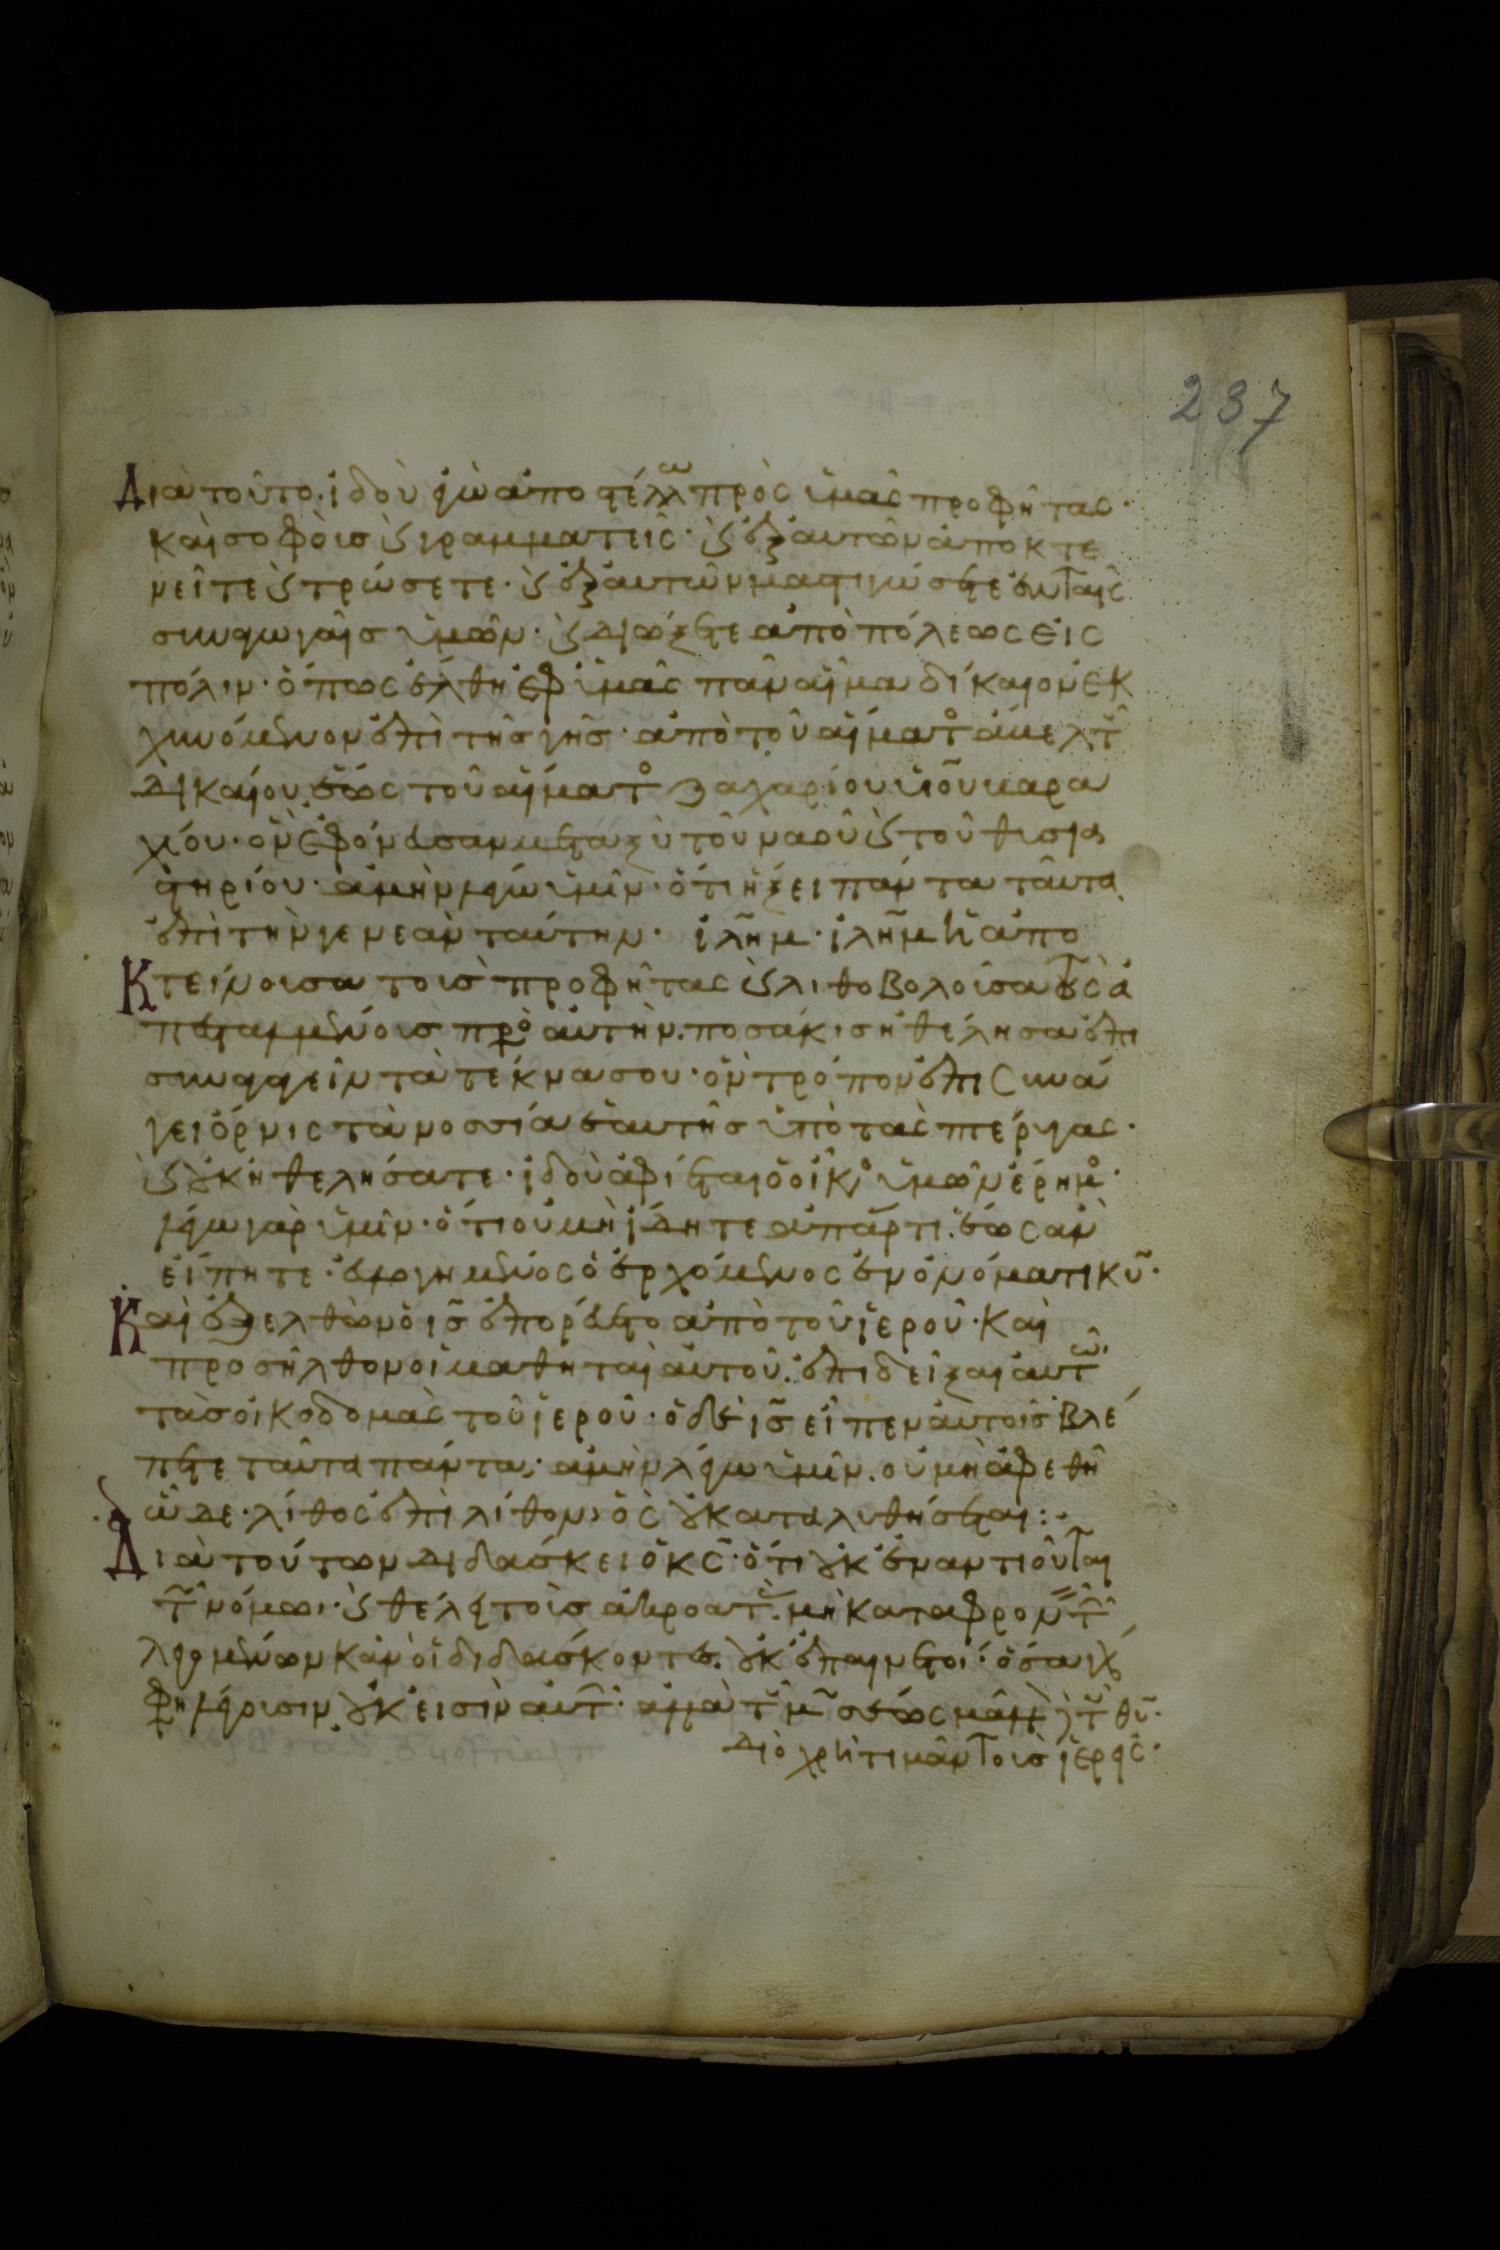 237
Διὰ τοῦτο· ἰδοὺ ἐγὼ ἀποστέλλω πρὸς ὑμᾶς προφήτας·
καὶ σοφοὺς ϗ γραμματεῖς· ϗ ἐξ αὐτῶν ἀποκτε
νεῖτε ϗ στρώσετε· ϗ ἐξ αὐτῶν μαστιγώσετε ἐν ταῖς
συναγωγαῖς ὑμῶν· ϗ διώξετε ἀπὸ πόλεως εἰς
πόλιν· ὅπως ἔλθη ἐφ ὑμᾶς πᾶν αἷμα δίκαιον ἐκ
χυνόμενον ἐπὶ τῆς γῆς· ἀπὸ τοῦ αἵματος ἄβελ τοῦ
δικαίου ἕως τοῦ αἵματος ζαχαρίου υἱοῦ βαρα
χίου· ὃν ἐφονεύσατε μεταξὺ τοῦ ναοῦ ϗ τοῦ θυσια
στηρίου· ἀμὴν λέγω ὑμῖν· ὅτι ἥξει πάντα ταῦτα
ἐπὶ τὴν γενεὰν ταύτην· ἰλῆμ· ἰλῆμ ἡ ἀπο
Κτείνουσα τοὺς προφήτας ϗ λιθοβολοῦσα τοὺς ἀ
πεσταλμένους πρὸς αὐτήν· ποσάκις ἠθέλησα ἐπι
συναγαγεῖν τὰ τέκνα σου· ὃν τρόπον ἐπισυνά
γει ὄρνις τὰ νοσσία ἑαυτῆς ὑπὸ τὰς πτέρυγας·
ϗ οὐκ ἠθελήσατε· ἰδοὺ ἀφίεται ὁ οἶκος ὑμῶν ἔρημος·
λέγω γὰρ ὑμῖν· ὅτι οὐ μὴ ἴδητε ἀπάρτι· ἕως ἂν
εἴπητε· εὐλογημένος ὁ ἐρχόμενος ἐν ὀνόματι κυ·
Καὶ ἐξελθὼν ὁ ις ἐπορεύετο ἀπὸ τοῦ ἱεροῦ· Καὶ
προσῆλθον οἱ μαθηταὶ αὐτοῦ· ἐπιδεῖξαι αὐτῶ
τὰς οἰκοδομὰς τοῦ ἱεροῦ· ὁ δὲ ις εἶπεν αὐτοῖς· βλέ
πετε ταῦτα πάντα· ἀμὴν λέγω ὑμῖν· οὐ μὴ ἀφεθῆ
ὧδε· λίθος ἐπὶ λίθον· ὃς οὐ καταλυθήσεται:
Διὰ τούτων διδάσκει ὁ κς· ὅτι οὐκ ἐναντιοῦται
τῶ νόμω· ϗ θέλει τοὺς ἀκροατὰς μὴ καταφρονεῖν τῶν
λεγομένων κἂν οἱ διδάσκοντες οὐκ ἐπαινετοί·
οὐκ εἰσὶν αὐτῶν·
Διὸ χρὴ τιμᾶν τοὺς ἱερεῖς·